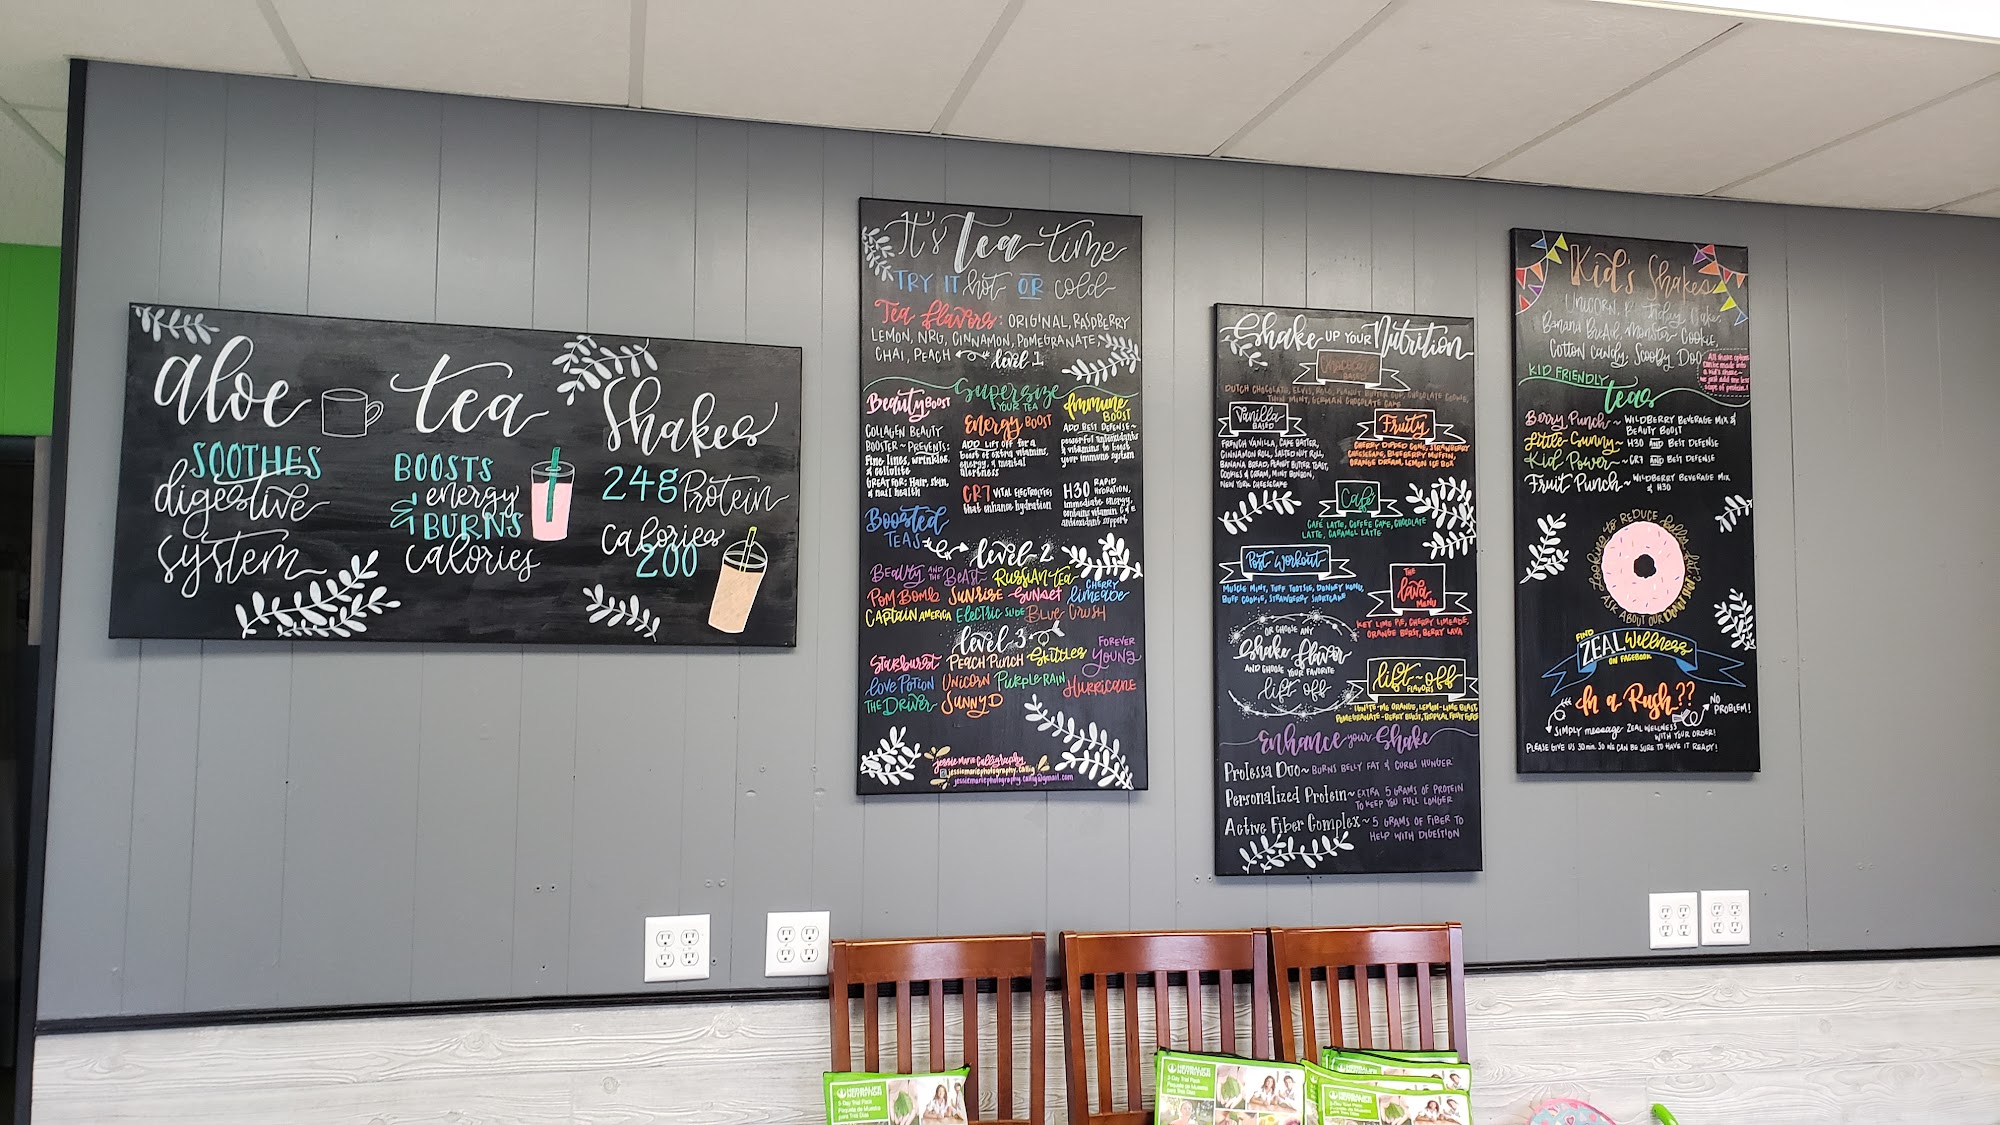 aloe
SOOTHES
digestive
system
tea
BOOSTS
& energy
BURNS
calories
Shakes
24g Protein
calories
200
It's Tea time
TRY IT hot OR cold
Tea flavors: ORIGINAL, RASPBERRY
LEMON, NRG, CINNAMON, POMEGRANATE
CHAI, PEACH level 1
Supersize
YOUR TEA
Beauty BOOST
COLLAGEN BEAUTY
BOOSTER~ PREVENTS:
Fine lines, wrinkles,
& cellulite
GREAT FOR: Hair, skin,
& nail health
Energy BOOST
ADD LIFT OFF for a
boost of extra vitamins,
energy, & mental
alertness
Immune
BOOST
ADD BEST DEFENSE~
powerful antioxidants
& vitamins to boost
your immune system
CR7 VITAL ELECTROLYTES
that enhance hydration
H30 RAPID
HYDRATION,
immediate energy,
contains vitamin C & E
antioxidant support
Boosted
TEAS
level 2
Beauty AND THE Beast Russian Tea CHERRY
limeade
Pom Bomb Sunrise Sunset
Captain AMERICA Electric Slide Blue Crush
level 3
Starburst Peach Punch Skittles FOREVER
YOUNG
Love Potion Unicorn Purple Rain Hurricane
The Driver Sunny D
jessie marie Calligraphy
jessiemariephotography.callig
jessiemariephotography.callig@gmail.com
Shake UP YOUR Nutrition
Chocolate
BASED
DUTCH CHOCOLATE, ELVIS, ROLO, PEANUT BUTTER CUP, CHOCOLATE COOKIE,
THIN MINT, GERMAN CHOCOLATE CAKE
Vanilla
BASED
FRENCH VANILLA, CAKE BATTER,
CINNAMON ROLL, SALTED NUT ROLL,
BANANA BREAD, PEANUT BUTTER TOAST,
COOKIES & CREAM, MINT BONBON,
NEW YORK CHEESECAKE
Fruity
CHERRY DIPPED CONE, STRAWBERRY
CHEESECAKE, BLUEBERRY MUFFIN,
ORANGE DREAM, LEMON ICE BOX
Café
CAFÉ LATTE, COFFEE CAKE, CHOCOLATE
LATTE, CARAMEL LATTE
Post Workout
MUSCLE MINT, TUFF TOOTSIE, DONKEY KONG,
BUFF COOKIE, STRAWBERRY SHORTCAKE
THE
lava
MENU
KEY LIME PIE, CHERRY LIMEADE,
ORANGE BURST, BERRY LAVA
OR CHOOSE ANY
Shake flavor
AND CHOOSE YOUR FAVORITE
lift off
lift-off
FLAVORS
IGNITE-ME ORANGE, LEMON-LIME BLAST,
POMEGRANATE-BERRY BURST, TROPICAL FRUIT FORCE
Enhance your Shake
Prolessa Duo~ BURNS BELLY FAT & CURBS HUNGER
Personalized Protein~ EXTRA 5 GRAMS OF PROTEIN
TO KEEP YOU FULL LONGER
Active Fiber Complex~ 5 GRAMS OF FIBER TO
HELP WITH DIGESTION
Kid's Shakes
Unicorn, B-Friday Cake,
Banana Bread, Monster Cookie,
Cotton Candy, Scooby Doo
All shake options
can be made into
a kid's shake~
we just add one less
scope of protein!
KID FRIENDLY
teas
Berry Punch~ WILDBERRY BEVERAGE MIX &
BEAUTY BOOST
Little Sunny~ H30 AND BEST DEFENSE
Kid Power~ CR7 AND BEST DEFENSE
Fruit Punch~ WILDBERRY BEVERAGE MIX
& H30
looking to REDUCE belly fat?
ASK ABOUT OUR
FIND
ZEAL Wellness
ON FACEBOOK
In a Rush??
NO
PROBLEM!
SIMPLY message ZEAL WELLNESS
WITH YOUR ORDER!
PLEASE GIVE US 30 min. SO WE CAN BE SURE TO HAVE IT READY!
HERBALIFE
NUTRITION
3-Day Trial Pack
Paquete de Muestra
para Tres Días
HERBALIFE
NUTRITION
3-Day Trial Pack
Paquete de Muestra
para Tres Días
HERBALIFE
NUTRITION
3-Day Trial Pack
Paquete de Muestra
para Tres Días